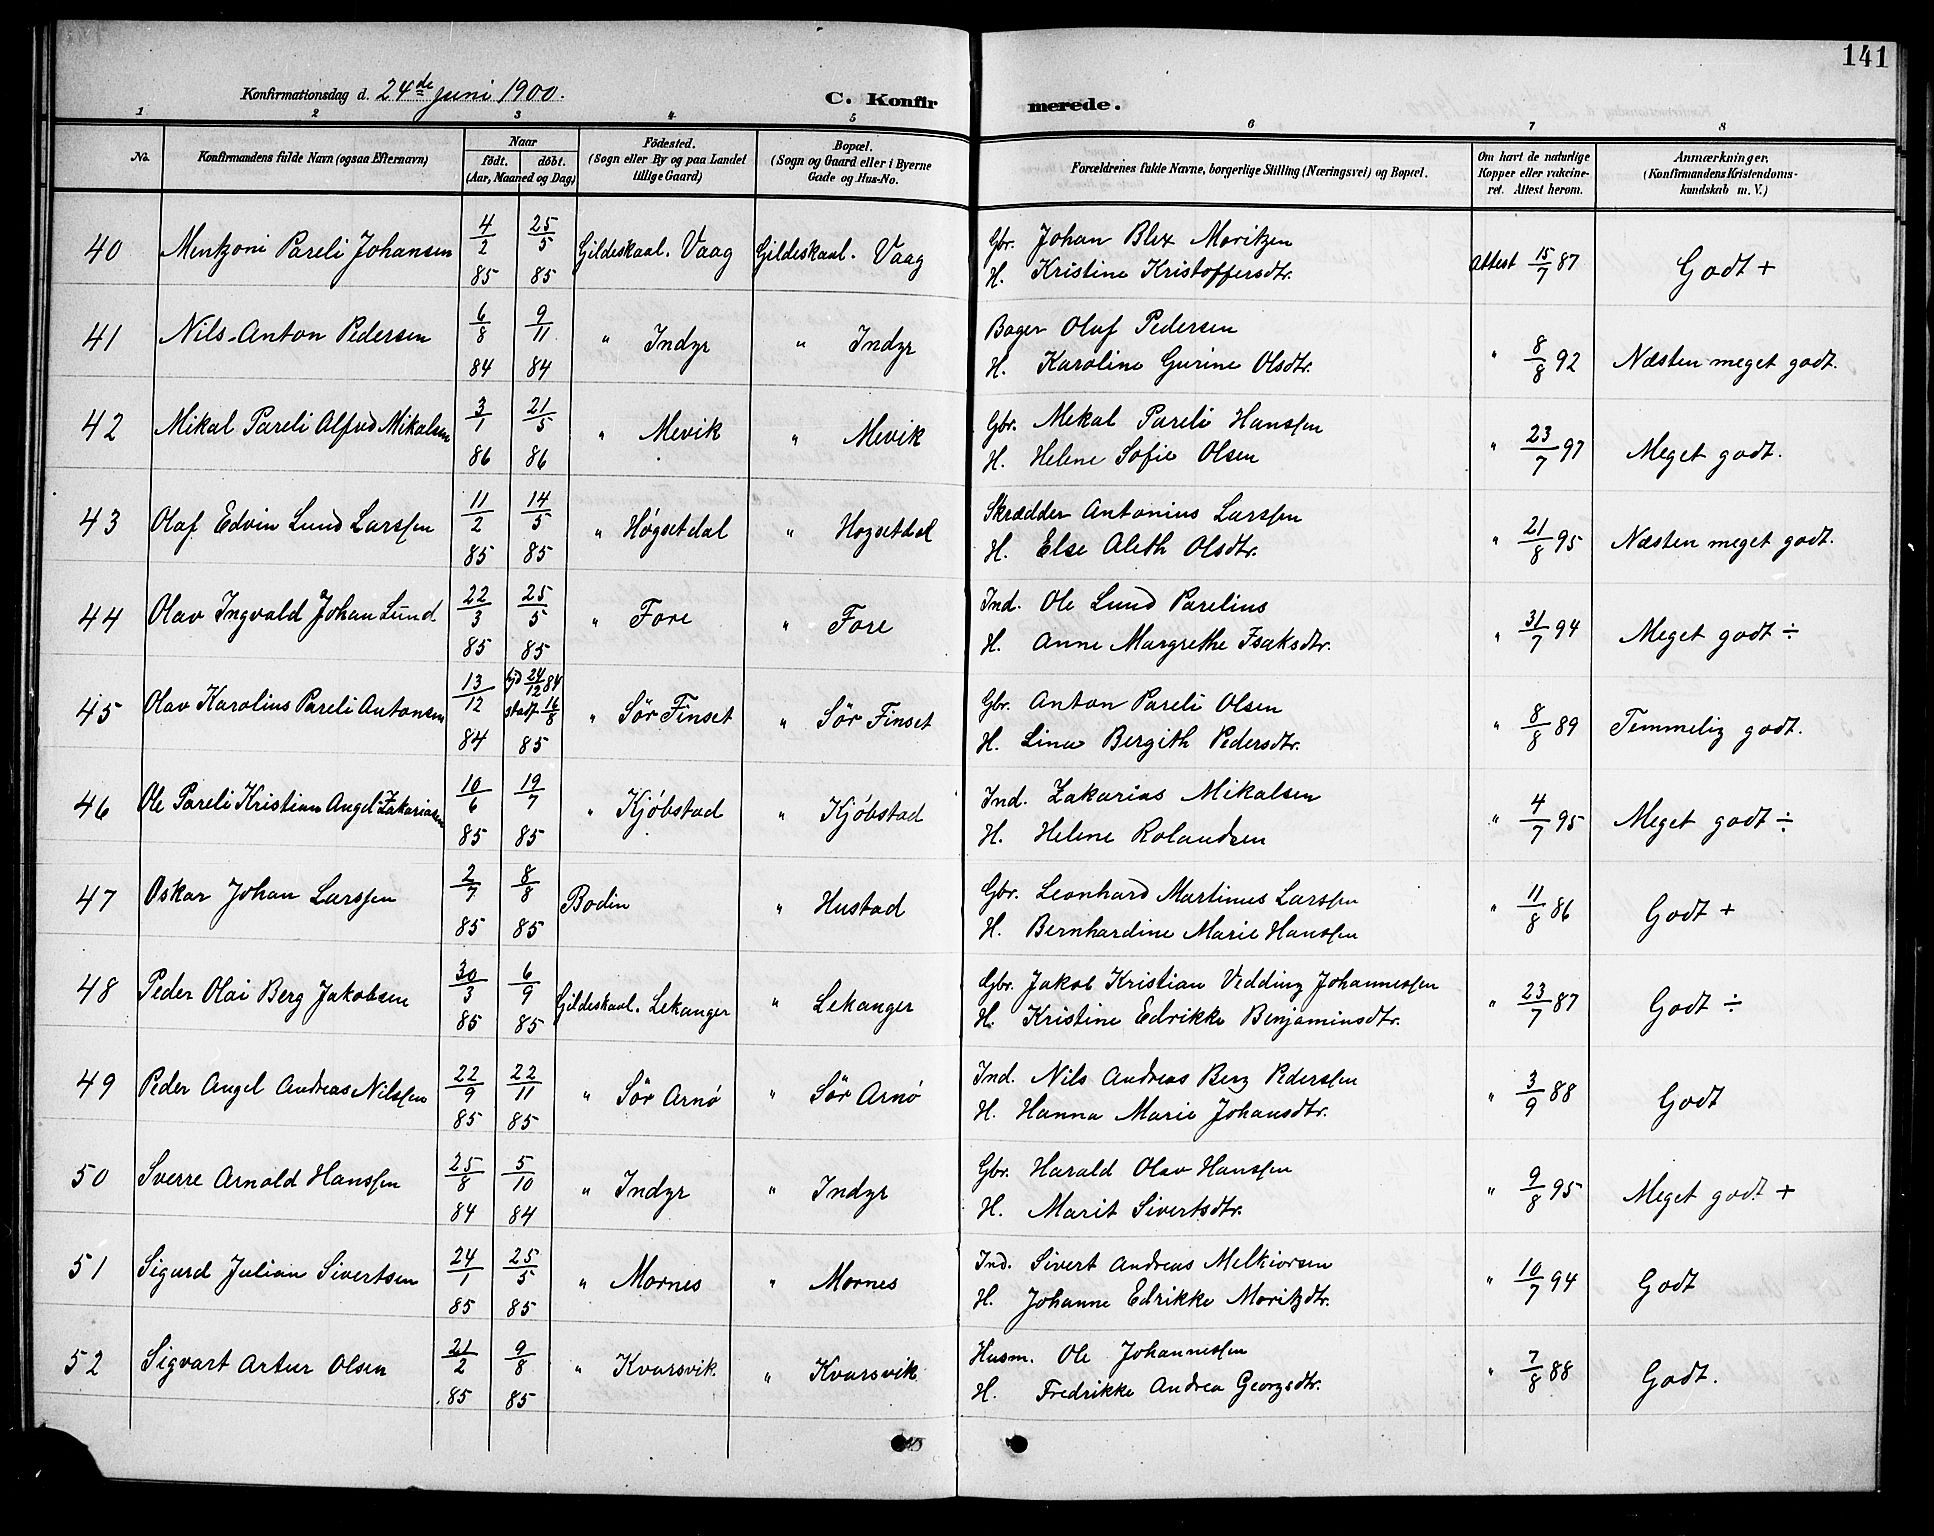 141
Konfirmationsdag d. 24de juni 1900.
C. Konfirmerede.
1 2 3 4 5 6 7 8
No. | Konfirmandens fulde Navn (ogsaa Efternavn) | Naar født. døbt. (Aar, Maaned og Dag) | Fødested. (Sogn eller By og paa Landet tillige Gaard) | Bopæl. (Sogn og Gaard eller i Byerne Gade og Hus-No. | Forældrenes fulde Navne, borgerlige Stilling (Næringsvei) og Bopæl. | Om havt de naturlige Kopper eller vakcineret. Attest herom. | Anmærkninger. (Konfirmandens Kristendomskundskab m. V.)
40 Mentzoni Pareli Johansen 4/2 85 25/5 85 Gildeskaal. Vaag Gildeskaal. Vaag Gbr. Johan Blix Moritzen Attest 15/7 87 Godt +
H. Kristine Kristoffersdtr.
41 Nils Anton Pedersen 6/8 84 9/11 84 " Indyr " Indyr Bager Olaf Pedersen " 8/8 92 Næsten meget godt.
H. Karoline Gurine Olsdtr.
42 Mikal Pareli Alfred Mikalsen 3/1 86 21/5 86 " Mevik " Mevik Gbr. Mekal Pareli Hanssen " 23/7 97 Meget godt.
H. Helene Sofie Olsen
43 Olaf Edvin Lund Larssen 11/2 85 14/5 85 " Høgsetdal " Hogsetdal Skrædder Antonius Larssen " 21/8 95 Næsten meget godt.
H. Else Aleth Olsdtr.
44 Olav Ingvald Johan Lund 22/3 85 25/5 85 " Fore " Fore Ind. Ole Lund Parelius " 31/7 94 Meget godt ÷
H. Anne Margrethe Isaksdtr.
45 Olav Karolius Pareli Antonsen 13/12 84 hjd 24/12 84 stadf. 16/8 85 " Sör Finset " Sör Finset Gbr. Anton Pareli Olsen " 8/8 89 Temmelig godt.
H. Lina Bergith Pedersdtr.
46 Ole Pareli Kristian Angel Zakariasen 10/6 85 19/7 85 " Kjøbstad " Kjøbstad Ind. Zakarias Mikalsen " 4/7 95 Meget godt ÷
H. Helene Rolandsen
47 Oskar Johan Larssen 2/7 85 8/8 85 Bodin " Hustad Gbr. Leonhard Martinus Larssen " 11/8 86 Godt +
H. Bernhardine Marie Hanssen
48 Peder Olai Berg Jakobsen 30/3 85 6/9 85 Gildeskaal. Lekanger " Lekanger Gbr. Jakob Kristian Vedding Johannessen " 23/7 87 Godt ÷
H. Kristine Edrikke Benjaminsdtr.
49 Peder Angel Andreas Nilssen 22/9 85 22/11 85 " Sör Arnø " Sör Arnø Ind. Nils Andreas Berg Pederssen " 3/9 88 Godt
H. Hanna Marie Johansdtr.
50 Sverre Arnold Hanssen 25/8 84 5/10 84 " Indyr " Indyr Gbr. Harald Olav Hanssen " 9/8 95 Meget godt +
H. Marit Sivertsdtr.
51 Sigurd Julian Sivertsen 24/1 85 25/5 85 " Mornes " Mornes Ind. Sivert Andreas Melkiorsen " 10/7 94 Godt
H. Johanne Edrikke Moritzdtr.
52 Sigvart Artur Olsen 21/2 85 9/8 85 " Kvarsvik " Kvarsvik Husm. Ole Johannessen " 7/8 88 Godt.
H. Fredrikke Andrea Georgsdtr.